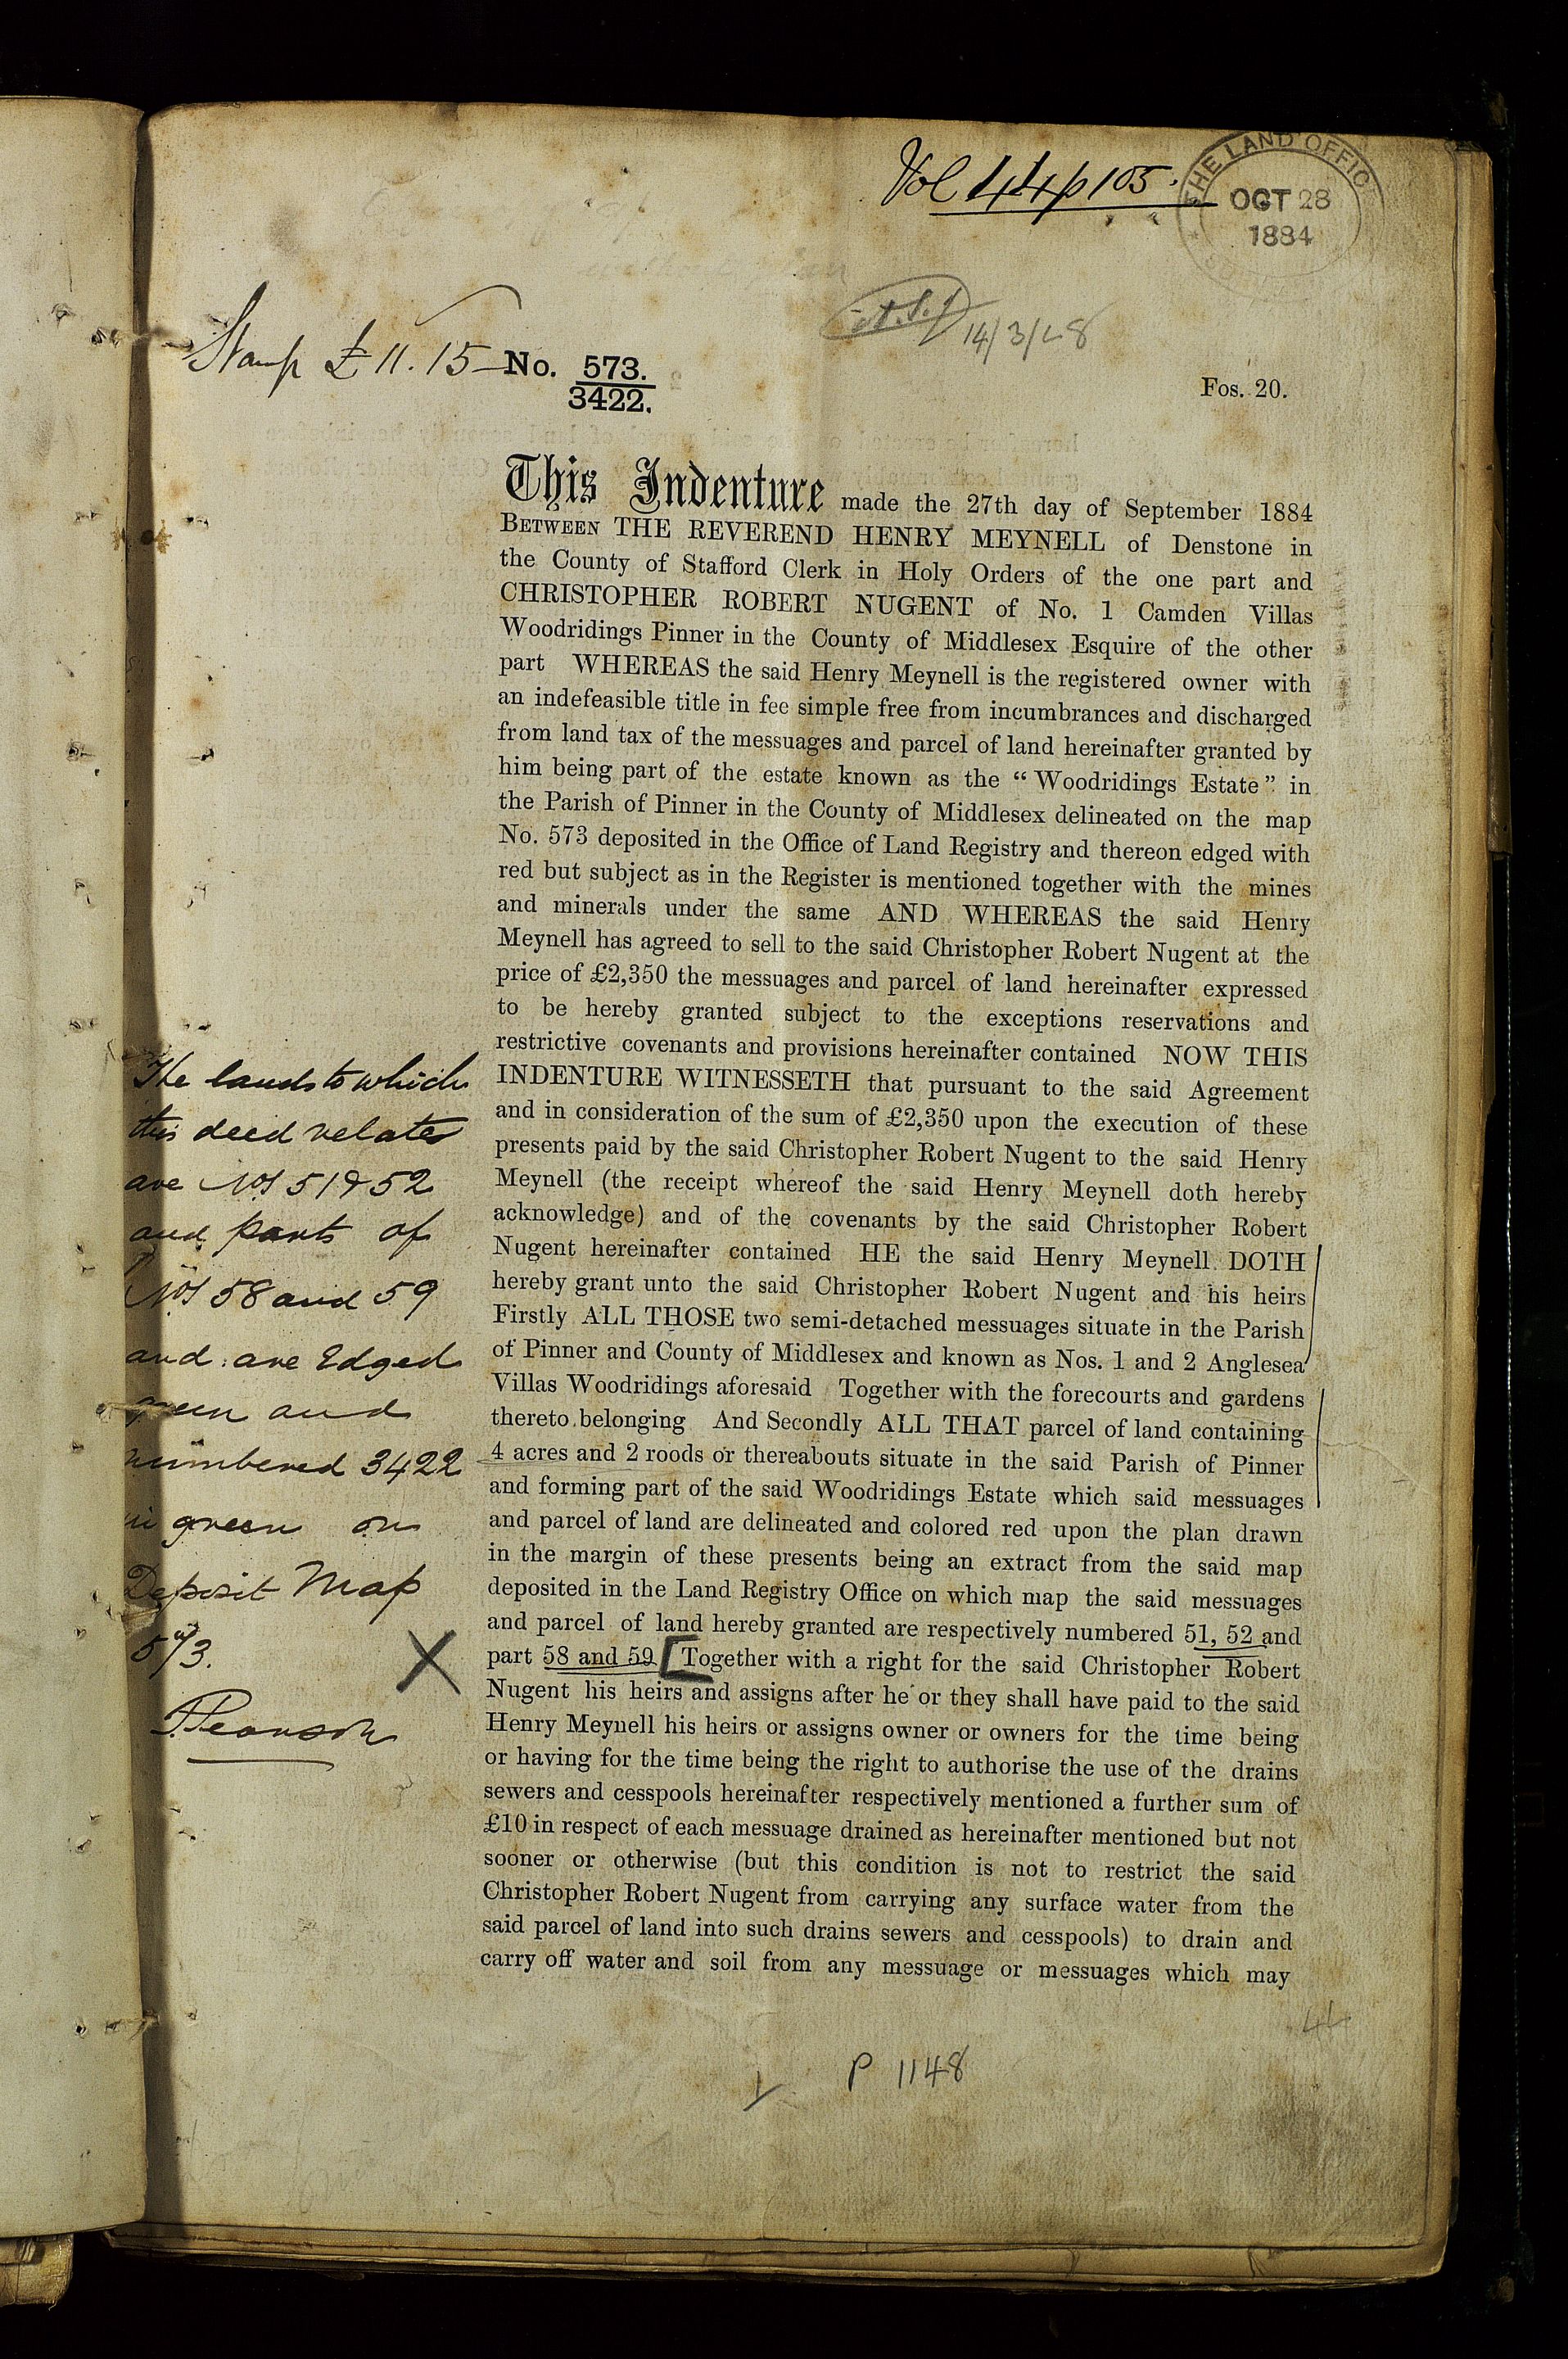 Vol 44 p 105.
THE LAND OFFIC
OCT 28
1884
14/3/28
Stamp £11.15 — No. 573.
3422.
Fos. 20.
This Indenture made the 27th day of September 1884
BETWEEN THE REVEREND HENRY MEYNELL of Denstone in
the County of Stafford Clerk in Holy Orders of the one part and
CHRISTOPHER ROBERT NUGENT of No. 1 Camden Villas
Woodridings Pinner in the County of Middlesex Esquire of the other
part WHEREAS the said Henry Meynell is the registered owner with
an indefeasible title in fee simple free from incumbrances and discharged
from land tax of the messuages and parcel of land hereinafter granted by
him being part of the estate known as the “Woodridings Estate” in
the Parish of Pinner in the County of Middlesex delineated on the map
No. 573 deposited in the Office of Land Registry and thereon edged with
red but subject as in the Register is mentioned together with the mines
and minerals under the same AND WHEREAS the said Henry
Meynell has agreed to sell to the said Christopher Robert Nugent at the
price of £2,350 the messuages and parcel of land hereinafter expressed
to be hereby granted subject to the exceptions reservations and
restrictive covenants and provisions hereinafter contained NOW THIS
INDENTURE WITNESSETH that pursuant to the said Agreement
and in consideration of the sum of £2,350 upon the execution of these
presents paid by the said Christopher Robert Nugent to the said Henry
Meynell (the receipt whereof the said Henry Meynell doth hereby
acknowledge) and of the covenants by the said Christopher Robert
Nugent hereinafter contained HE the said Henry Meynell DOTH
hereby grant unto the said Christopher Robert Nugent and his heirs
Firstly ALL THOSE two semi-detached messuages situate in the Parish
of Pinner and County of Middlesex and known as Nos. 1 and 2 Anglesea
Villas Woodridings aforesaid Together with the forecourts and gardens
thereto belonging And Secondly ALL THAT parcel of land containing
4 acres and 2 roods or thereabouts situate in the said Parish of Pinner
and forming part of the said Woodridings Estate which said messuages
and parcel of land are delineated and colored red upon the plan drawn
in the margin of these presents being an extract from the said map
deposited in the Land Registry Office on which map the said messuages
and parcel of land hereby granted are respectively numbered 51, 52 and
part 58 and 59 [Together with a right for the said Christopher Robert
Nugent his heirs and assigns after he or they shall have paid to the said
Henry Meynell his heirs or assigns owner or owners for the time being
or having for the time being the right to authorise the use of the drains
sewers and cesspools hereinafter respectively mentioned a further sum of
£10 in respect of each messuage drained as hereinafter mentioned but not
sooner or otherwise (but this condition is not to restrict the said
Christopher Robert Nugent from carrying any surface water from the
said parcel of land into such drains sewers and cesspools) to drain and
carry off water and soil from any messuage or messuages which may
The lands to which
this deed relates
are Nos 51 & 52
and parts of
Nos 58 and 59
and are Edged
green and
numbered 3422
in green on
Deposit Map
573.
X
Pearson
44
P 1148